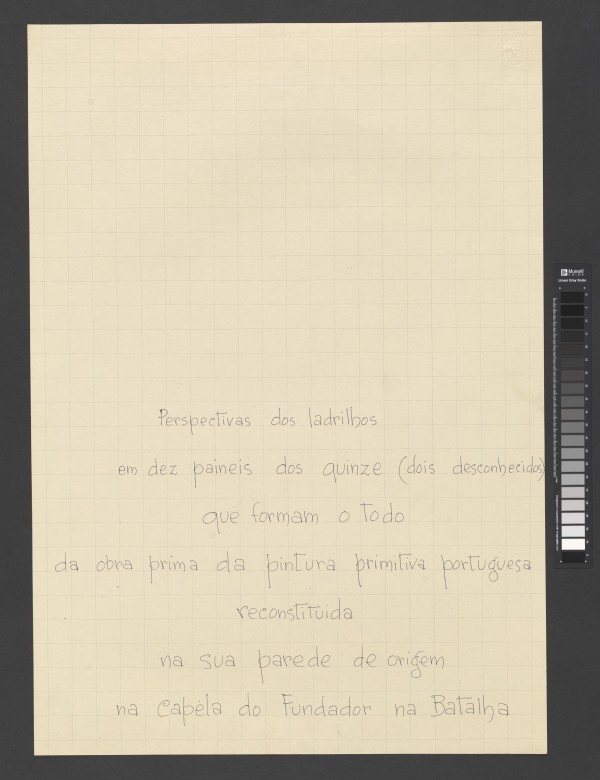 Perspectivas dos ladrilhos
em dez paineis dos quinze (dois desconhecidos)
que formam o todo
da obra prima da pintura primitiva portuguesa
reconstituida
na sua parede de origem
na Capela do Fundador na Batalha